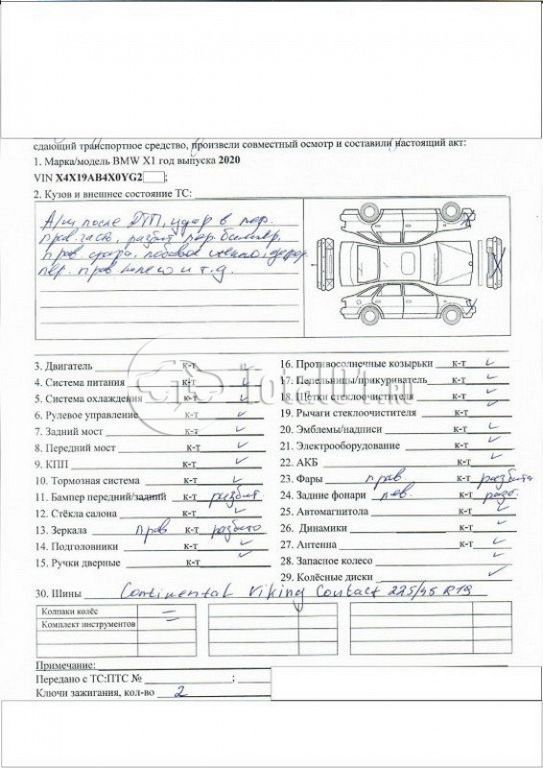 сдающий транспортное средство, произвели совместный осмотр и составили настоящий акт:
1. Марка/модель BMW X1 год выпуска 2020
VIN X4X19AB4X0YG2 ;
2. Кузов и внешнее состояние ТС:
А/м после ДТП, удар в пер.
прав. часть, разбит пер. бампер,
прав. фара, лобовое стекло,
пер. прав колесо и т.д.
3. Двигатель к-т
4. Система питания к-т
5. Система охлаждения к-т
6. Рулевое управление к-т
7. Задний мост к-т
8. Передний мост к-т
9. КПП к-т
10. Тормозная система к-т
11. Бампер передний/задний к-т разбит
12. Стёкла салона к-т
13. Зеркала прав к-т разбито
14. Подголовники к-т
15. Ручки дверные к-т
16. Противосолнечные козырьки к-т
17. Пепельницы/прикуриватель к-т
18. Щётки стеклоочистителя к-т
19. Рычаги стеклоочистителя к-т
20. Эмблемы/надписи к-т
21. Электрооборудование к-т
22. АКБ к-т
23. Фары прав к-т разбита
24. Задние фонари лев. к-т разб.
25. Автомагнитола к-т
26. Динамики к-т
27. Антенна к-т
28. Запасное колесо
29. Колёсные диски
30. Шины Continental Viking Contact 225/45 R19
Колпаки колёс
Комплект инструментов
Примечание:
Передано с ТС:ПТС № ;
Ключи зажигания, кол-во 2
Total01.ru